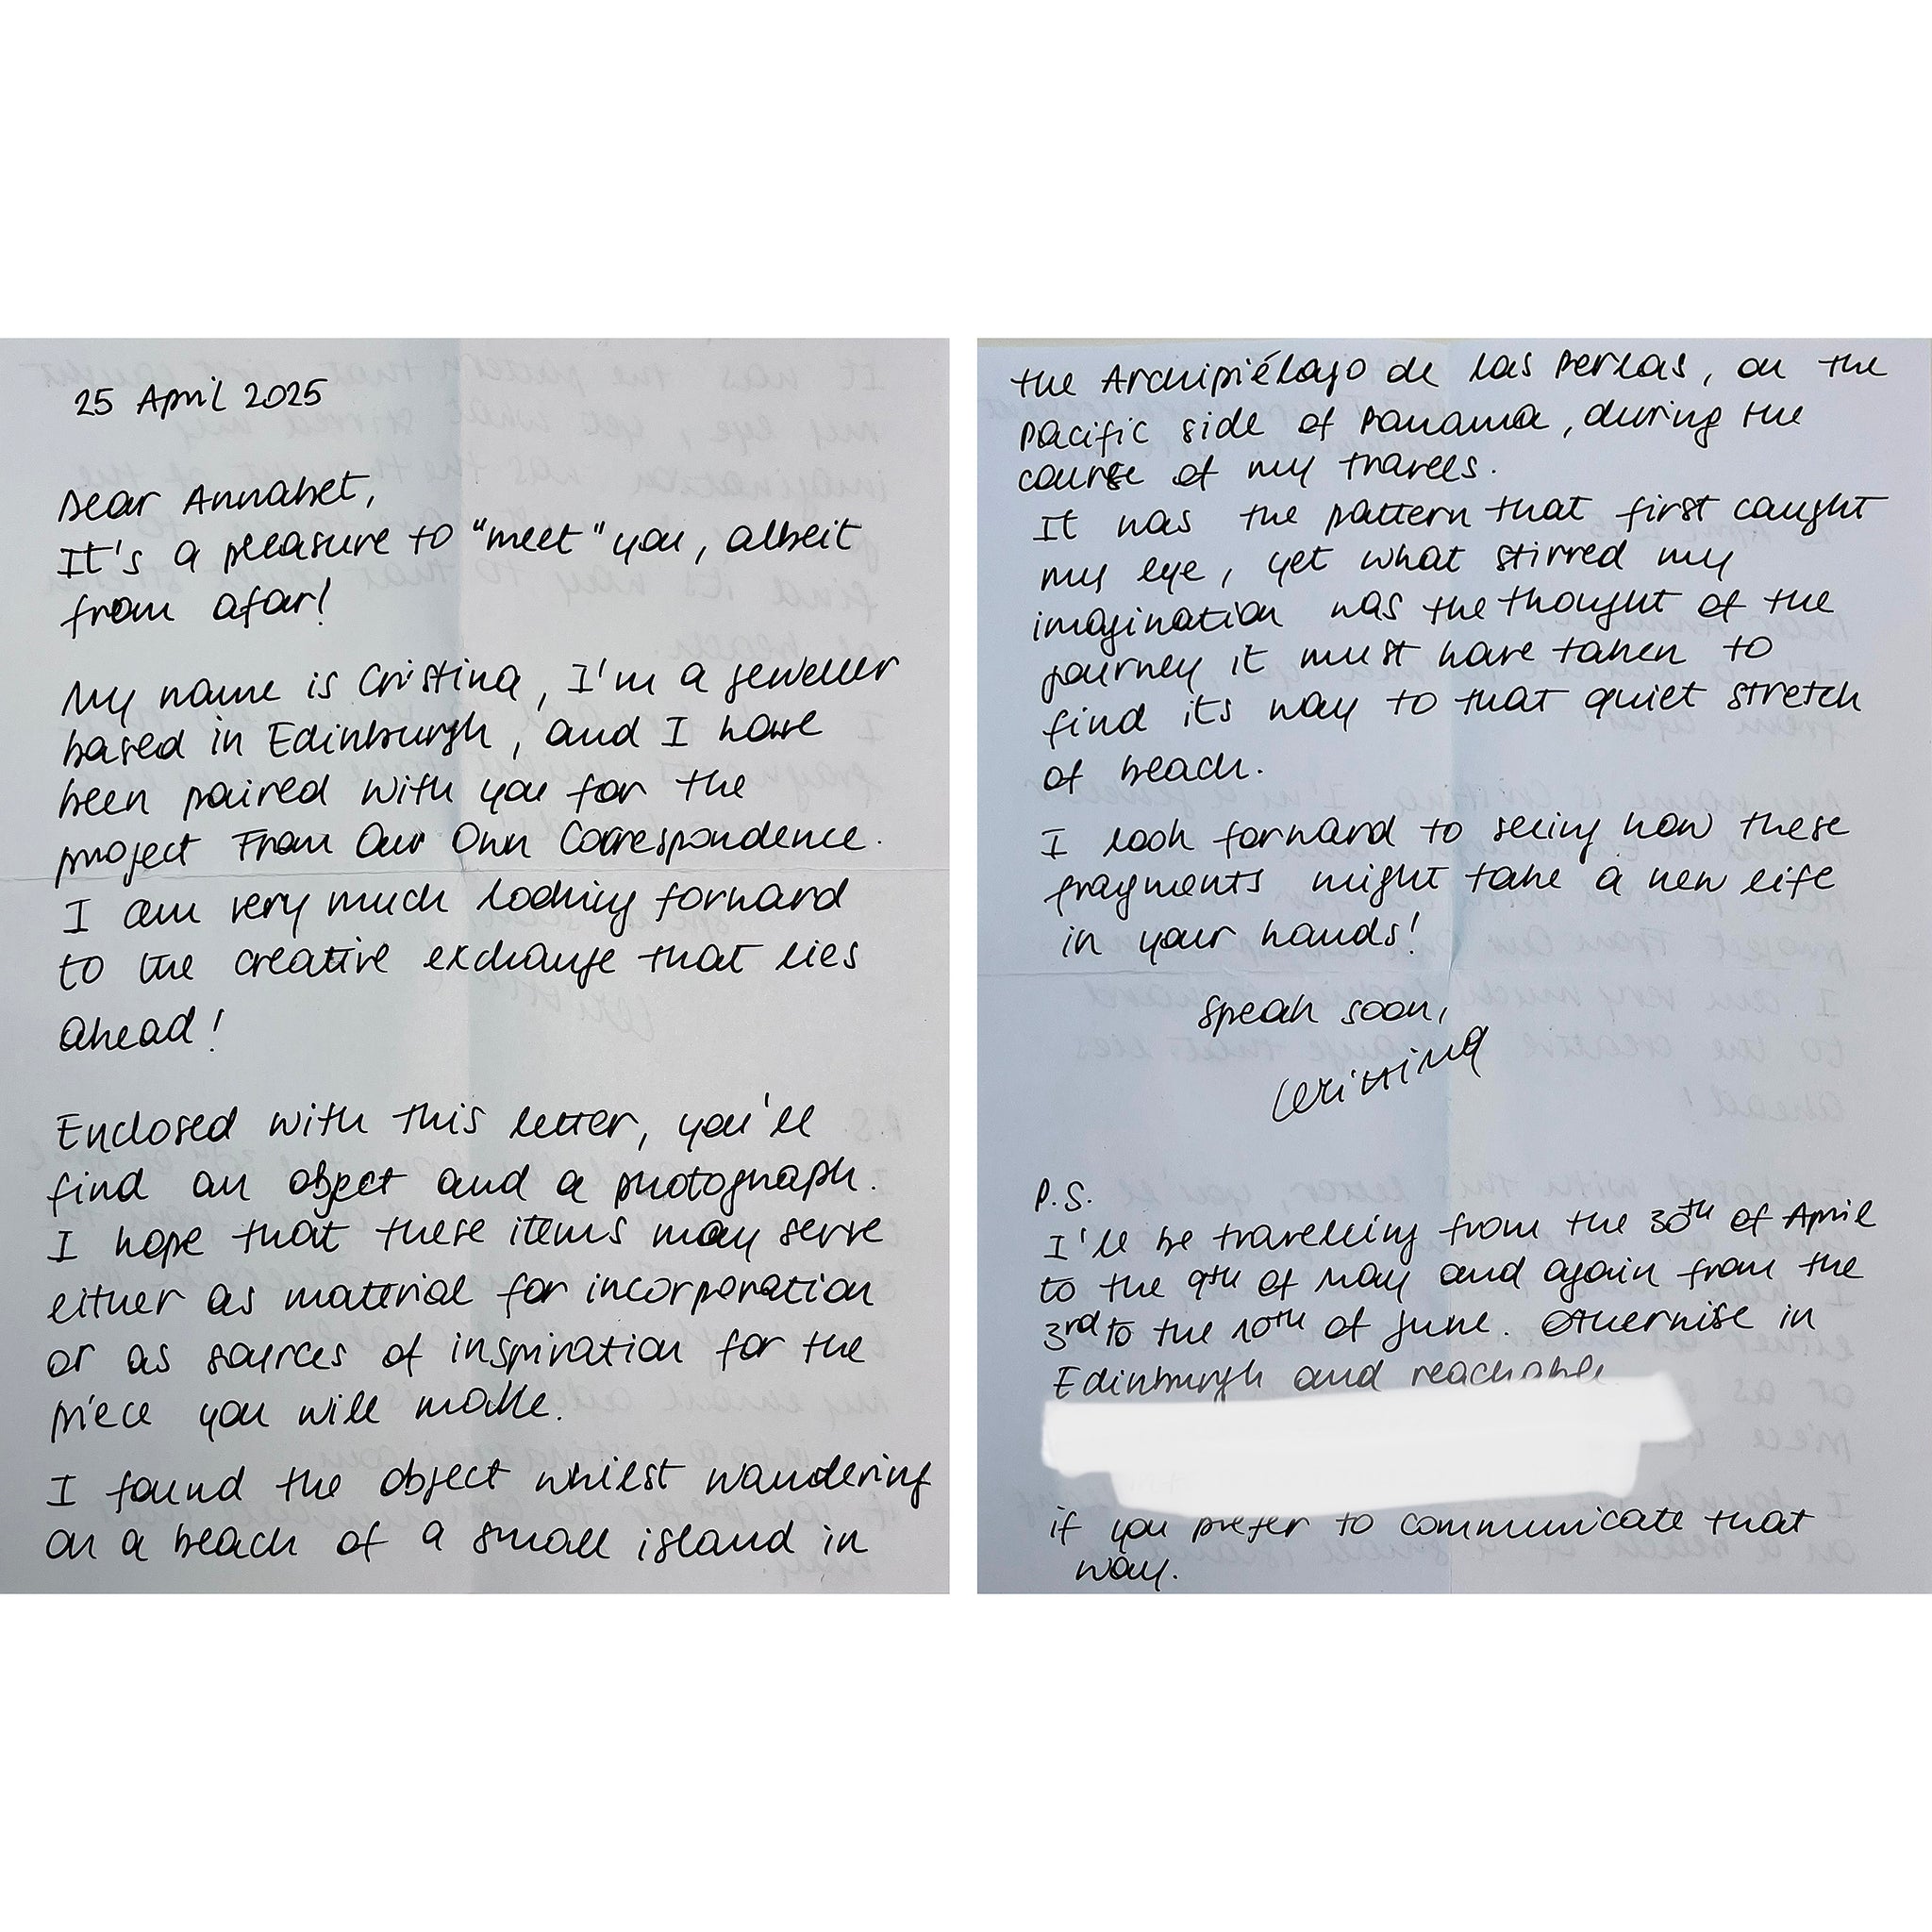 25 April 2025
Dear Annabet,
It's a pleasure to "meet" you, albeit
from afar!
My name is Cristina, I'm a jeweller
based in Edinburgh, and I have
been paired with you for the
project From Our Own Correspondence.
I am very much looking forward
to the creative exchange that lies
ahead!
Enclosed with this letter, you'll
find an object and a photograph.
I hope that these items may serve
either as material for incorporation
or as sources of inspiration for the
piece you will make.
I found the object whilst wandering
on a beach of a small island in
the Archipiélago de las Perlas, on the
Pacific side of Panama, during the
course of my travels.
It was the pattern that first caught
my eye, yet what stirred my
imagination was the thought of the
journey it must have taken to
find its way to that quiet stretch
of beach.
I look forward to seeing how these
fragments might take a new life
in your hands!
Speak soon,
Cristina
P.S.
I'll be travelling from the 30th of April
to the 9th of May and again from the
3rd to the 10th of June. Otherwise in
Edinburgh and reachable
if you prefer to communicate that
way.